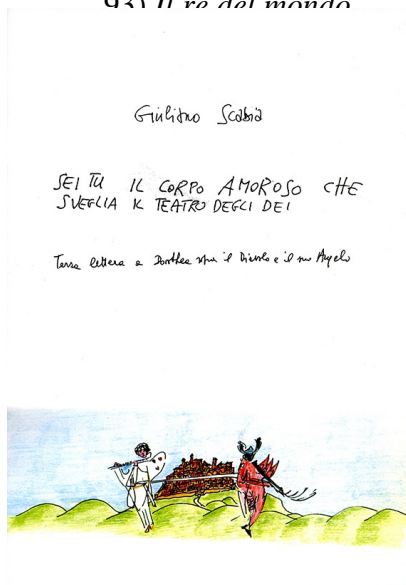 93) Il re del mondo
Giuliano Scabia
SEI TU IL CORPO AMOROSO CHE
SVEGLIA IL TEATRO DEGLI DEI
Terza lettera a Dorothea sopra il Diavolo e il suo Angelo